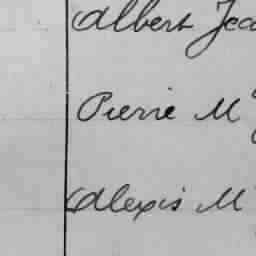 Albert Jea
Pierre M
Alexis M